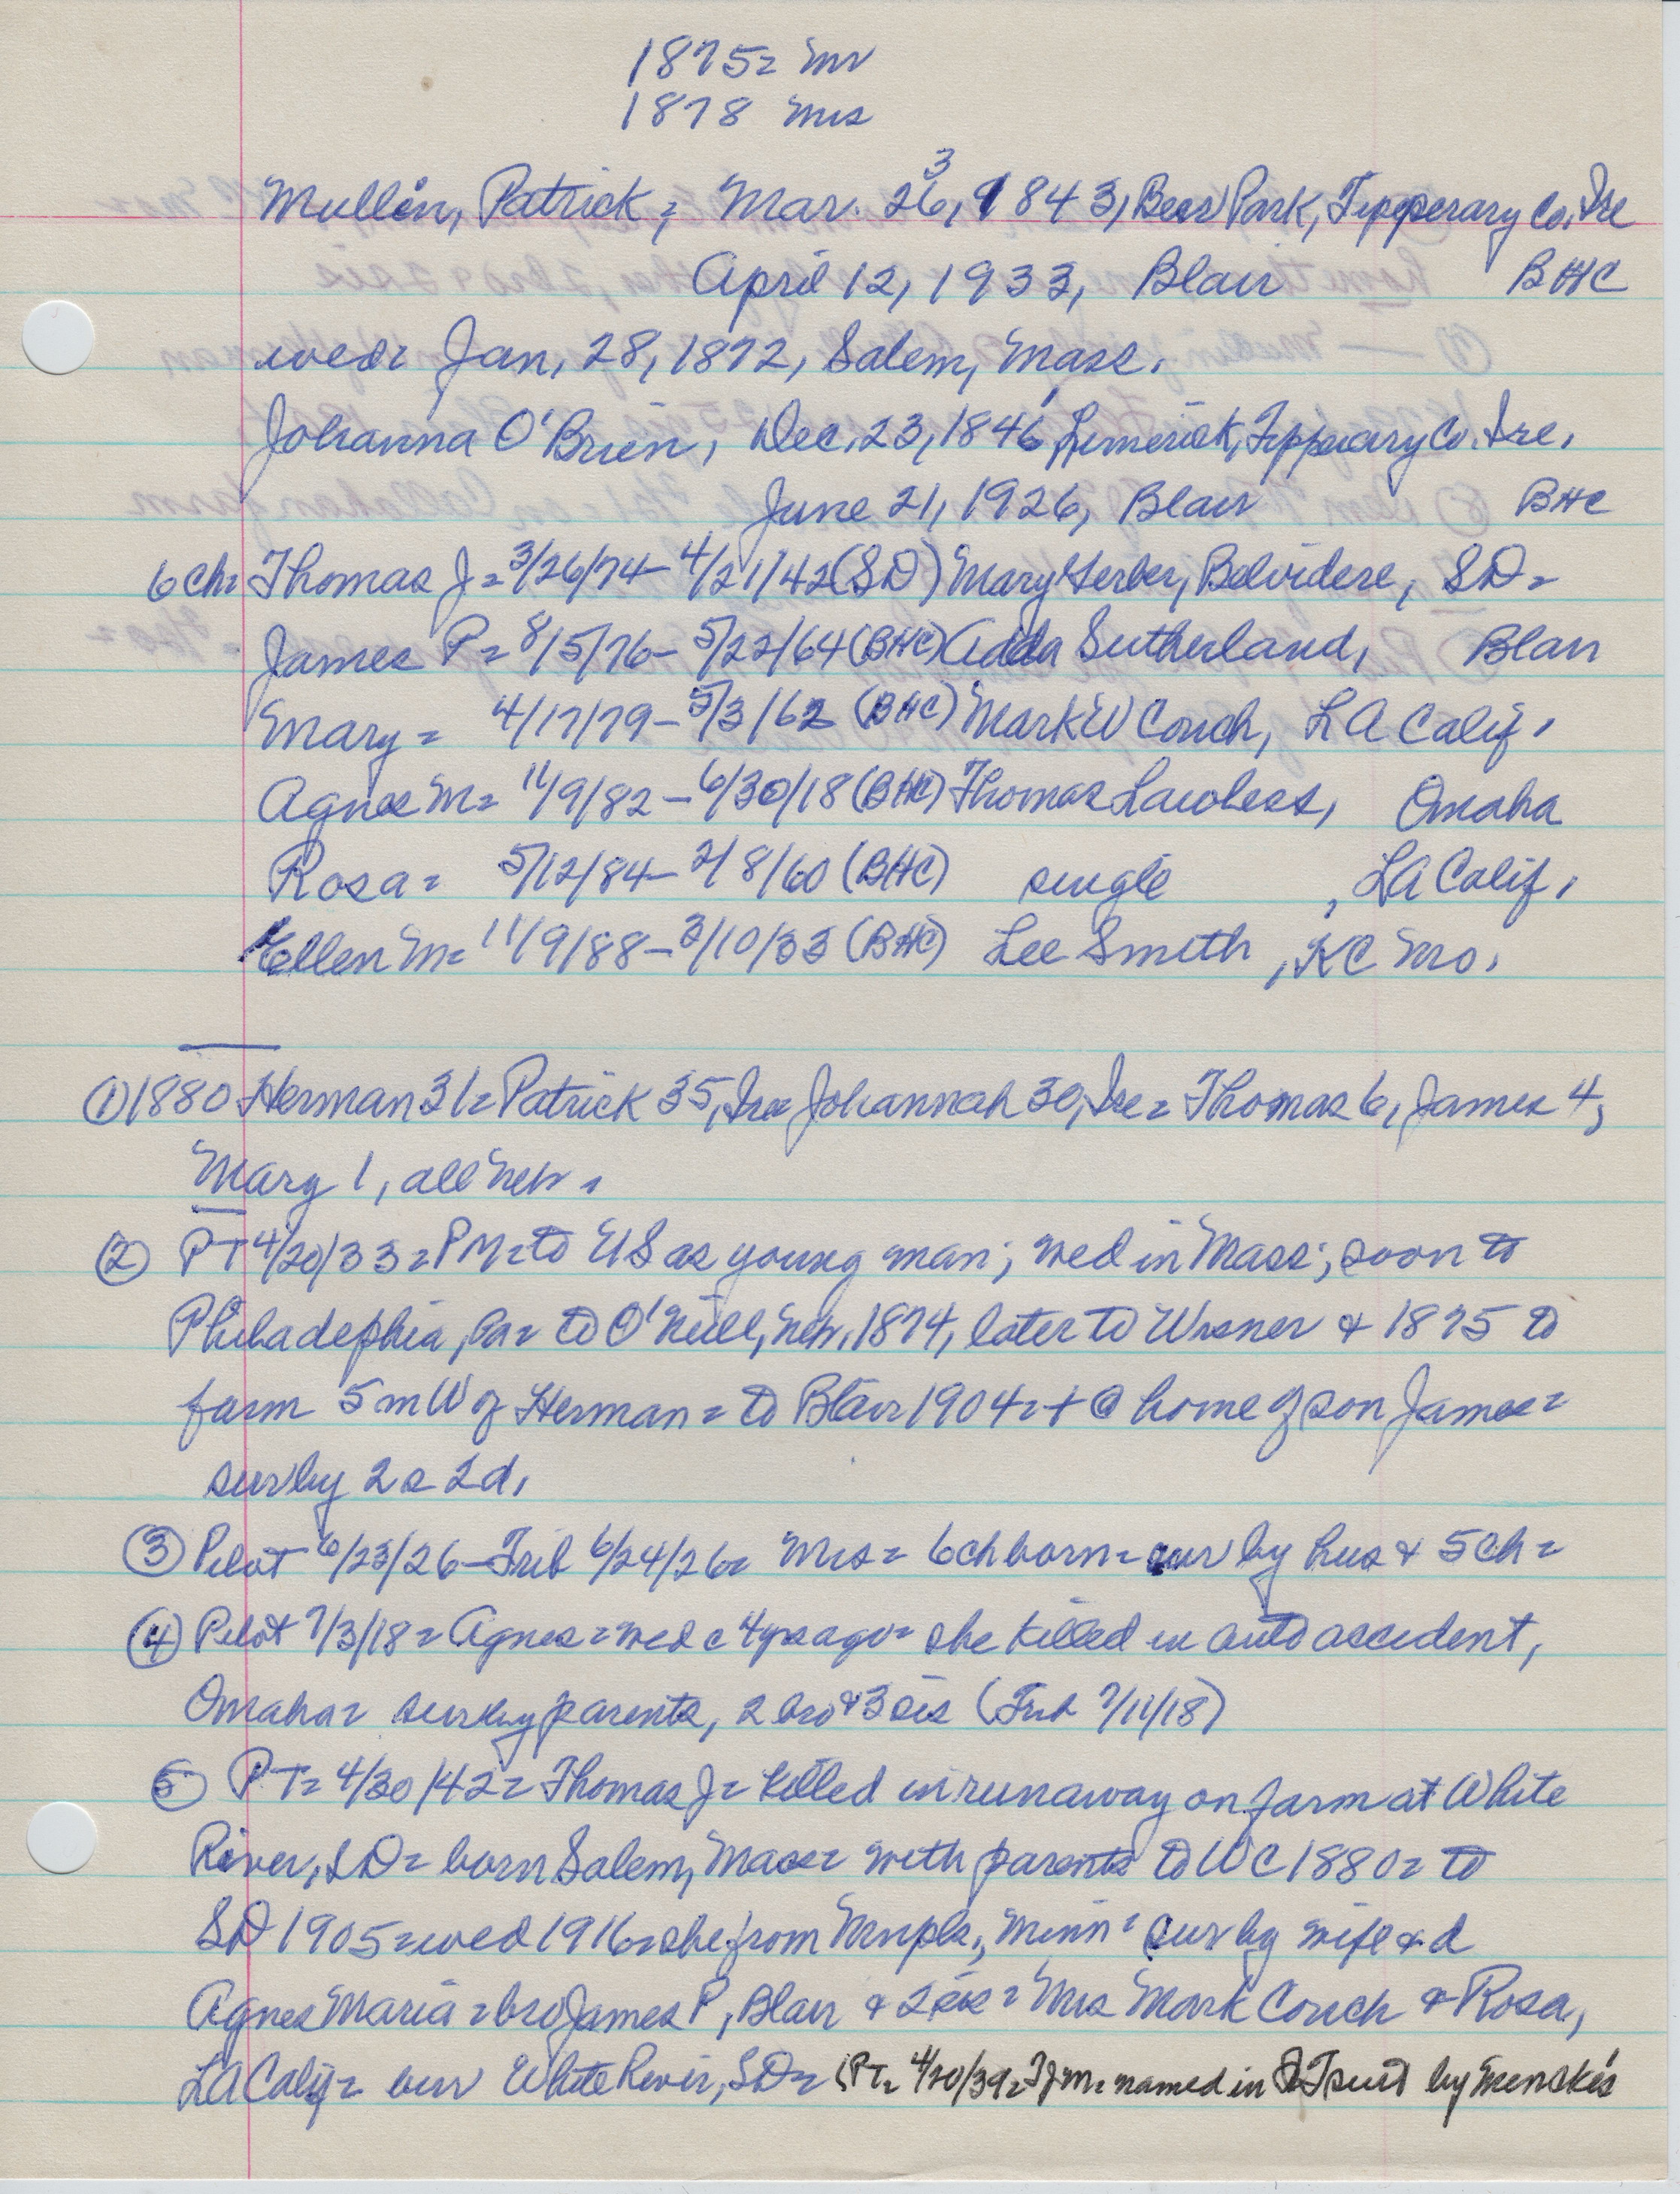 1875= Mr
1878 Mrs
3
Mullin, Patrick, Mar. 26, 1843, Beer Park, Tipperary Co. Ire
April 12, 1933, Blair BHC
wed= Jan, 28, 1872, Salem, Mass.
Johanna O'Brien, Dec. 23, 1846, Limerick, Tipperary Co. Ire.
June 21, 1926, Blair BHC
6 ch= Thomas J = 3/26/74 - 4/21/42 (SD) Mary Gerber, Belvidere, SD=
James P= 8/5/76 - 5/22/64 (BHC) Adda Sutherland, Blair
Mary = 4/17/79 - 5/3/62 (BHC) Mark W Couch, LA Calif.
Agnes M= 11/9/82 - 6/30/18 (BHC) Thomas Lawless, Omaha
Rosa= 5/12/84 - 2/8/60 (BHC) single , LA Calif.
Ellen M= 11/9/88 - 3/10/33 (BHC) Lee Smith , KC Mo.
① 1880 Herman 31= Patrick 35, Ire= Johannah 30, Ire= Thomas 6, James 4,
Mary 1, all Neb.
② PT 4/20/33= PM= to US as young man; wed in Mass; soon to
Philadephia, Pa= to O'Neill, Neb. 1874, later to Wisner & 1875 to
farm 5 m W of Herman= to Blair 1904= + @ home of son James=
sur by 2 s 2 d.
③ Pilot 6/23/26 - Trib 6/24/26= Mrs= 6 ch born= sur by hus & 5 ch=
④ Pilot 7/3/18= Agnes= wed c 4 yrs ago= she killed in auto accident,
Omaha= sur by parents, 2 bro & 3 sis (Trib 7/11/18)
⑤ PT= 4/30/42= Thomas J= killed in runaway on farm at White
River, SD= born Salem, Mass= with parents to WC 1880= to
SD 1905= wed 1916= she from Mnpls, Minn= sur by wife & d
Agnes Maria= bro James P, Blair & 2 sis= Mrs Mark Couch & Rosa,
LA Calif= bur White River, SD= (PT= 4/20/39= TJM= named in suit by